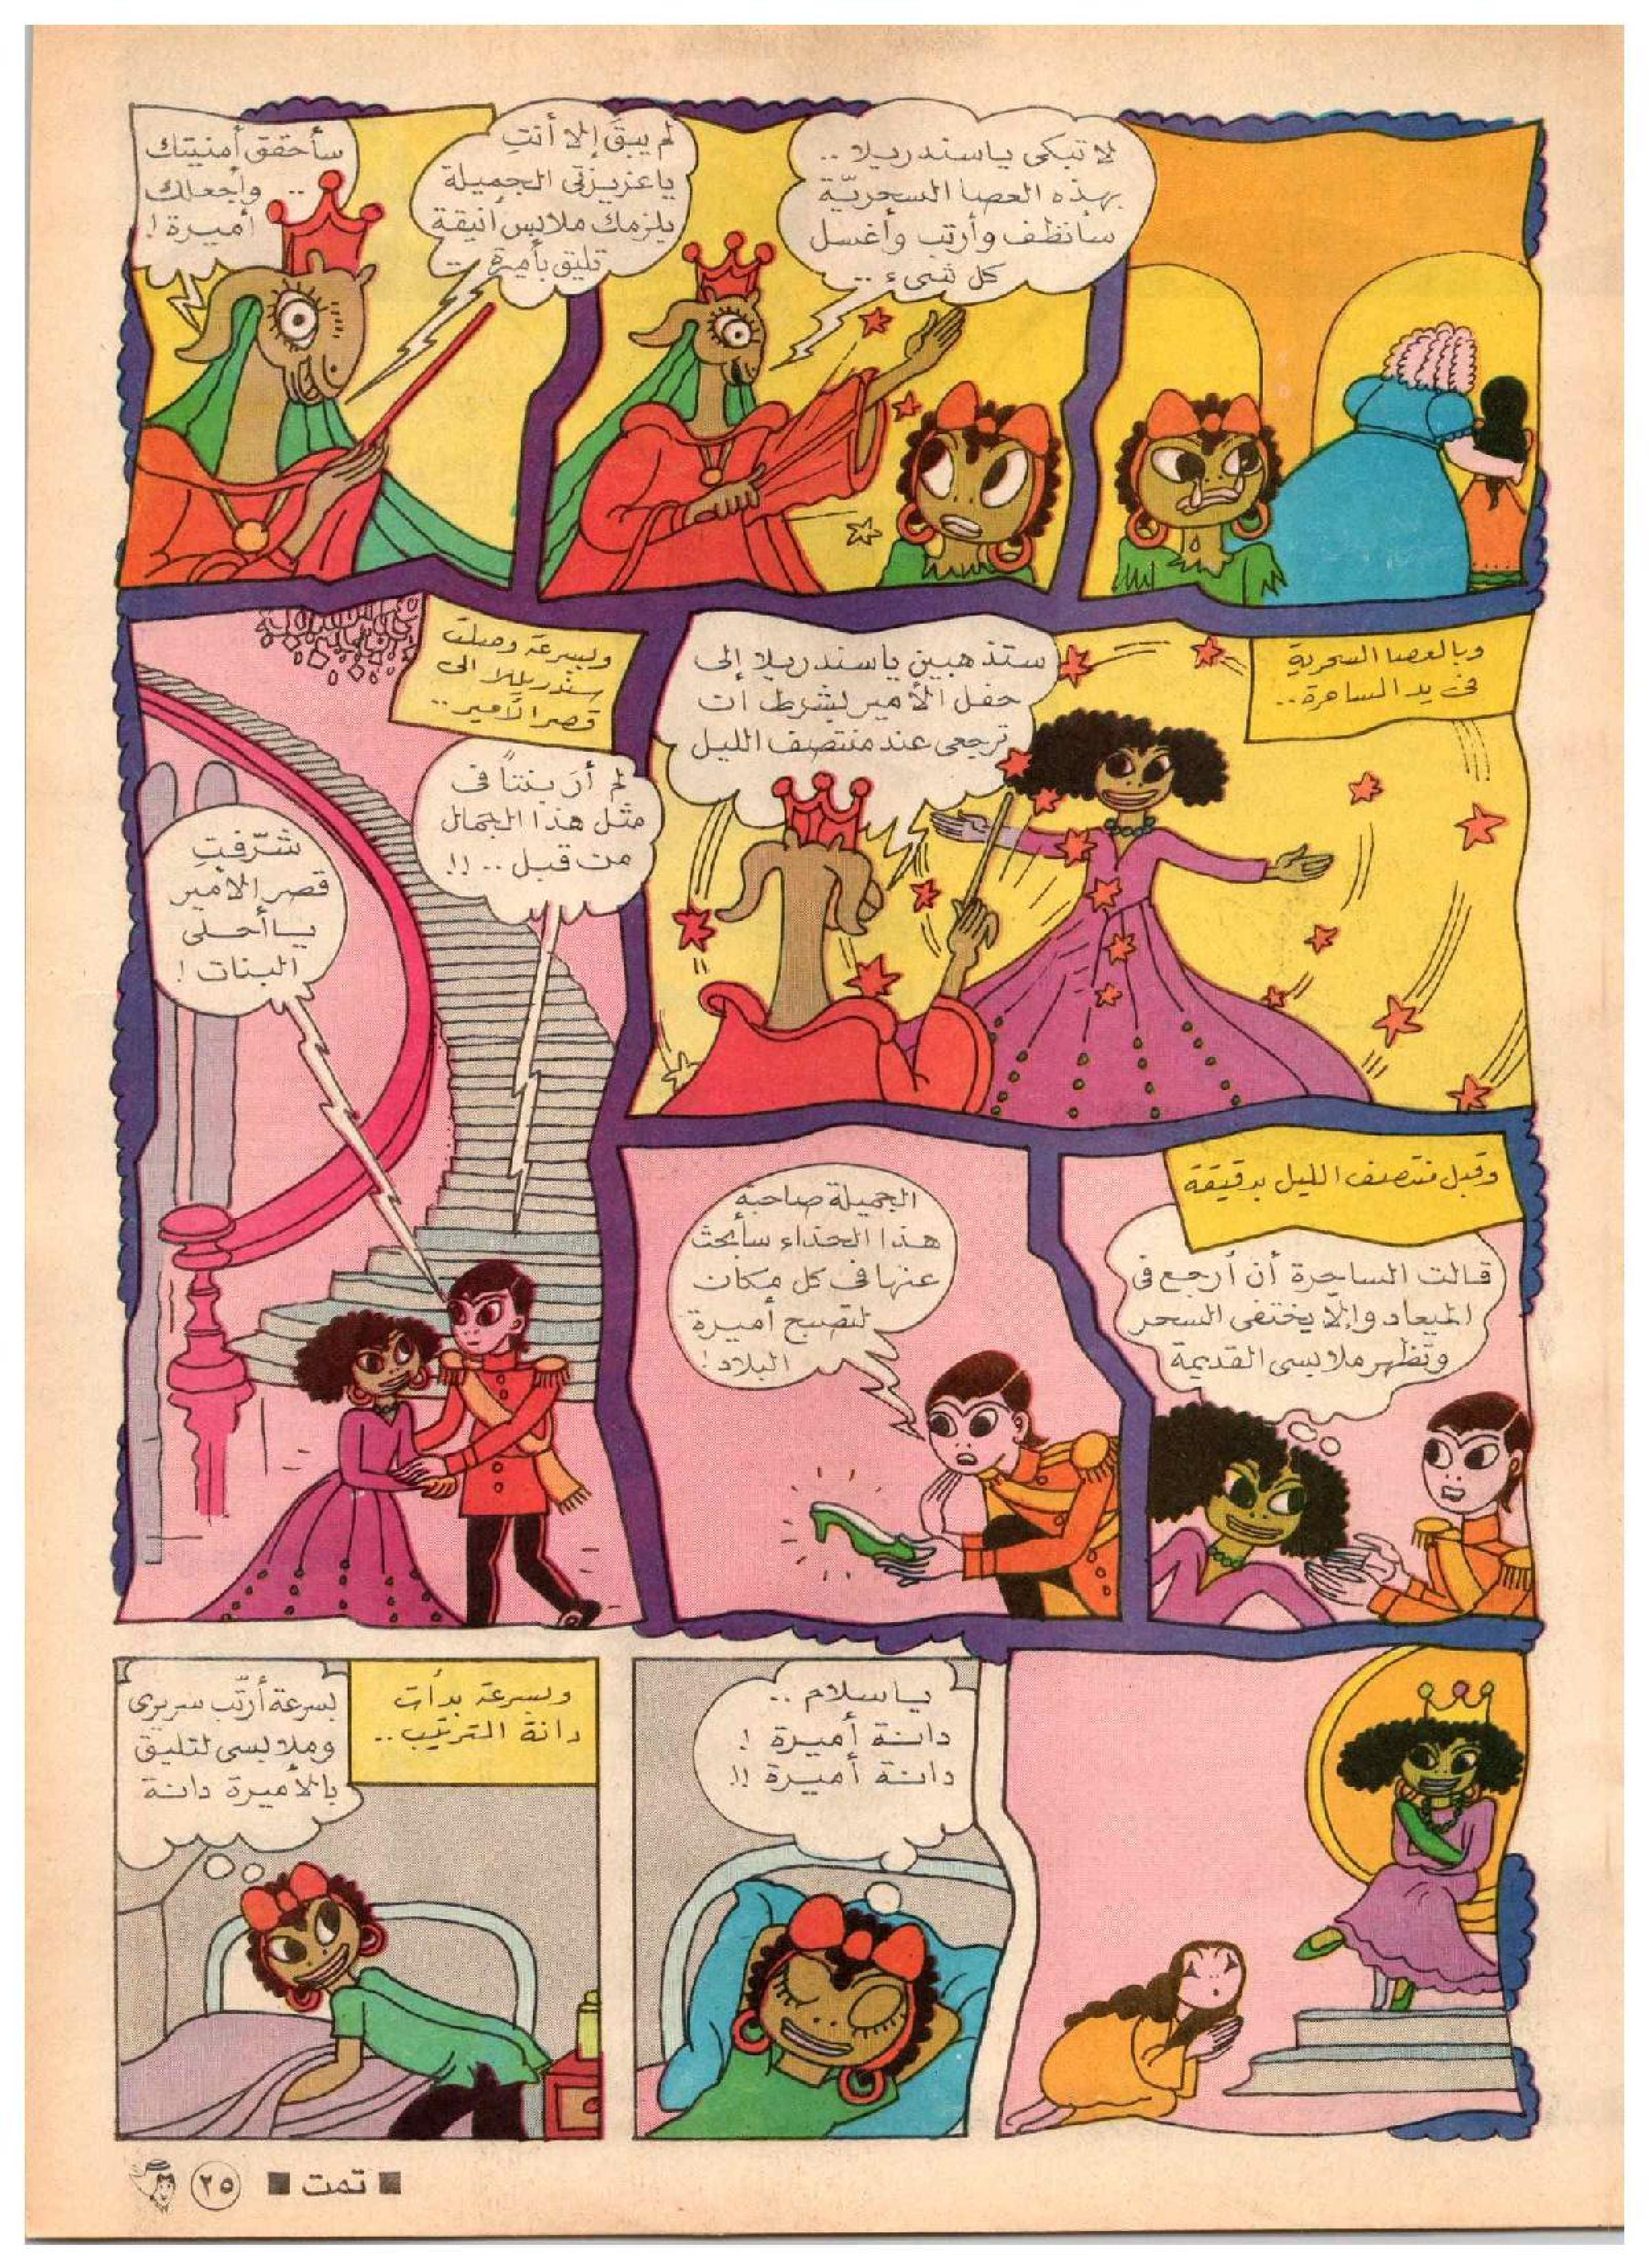 لا تبكى ياسندريلا ..
بهذه العصا السحريّة
سأنظف وأرتب وأغسل
كل شىء ..
لم يبقَ إلا أنتِ
ياعزيزتى الجميلة
يلزمك ملابس أنيقة
تليق بأميرة ..
سأحقق أمنيتك
.. وأجعلك
أميرة !
وبالعصا السحرية
فى يد الساحرة ..
ستذهبين ياسندريلا إلى
حفل الأمير بشرط ان
ترجعى عند منتصف الليل
وبسرعة وصلت
سندريللا الى
قصر الأمير ..
لم أرَ بنتاً فى
مثل هذا الجمال
من قبل .. !!
شرّفتِ
قصر الأمير
ياأحلى
البنات !
وقبل منتصف الليل بدقيقة
قالت الساحرة أن أرجع فى
الميعاد وإلّا يختفى السحر
وتظهر ملابسى القديمة
الجميلة صاحبة
هذا الحذاء سأبحث
عنها فى كل مكان
لتصبح أميرة
البلاد !
ياسلام ..
دانة أميرة !
دانة أميرة !!
وبسرعة بدأت
دانة الترتيب ..
بسرعة أرتّب سريرى
وملابسى لتليق
بالأميرة دانة
■ تمت ■
٢٥